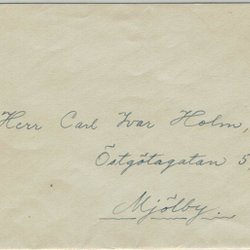 Herr Carl Ivar Holm,
Östgötagatan 5
Mjölby.